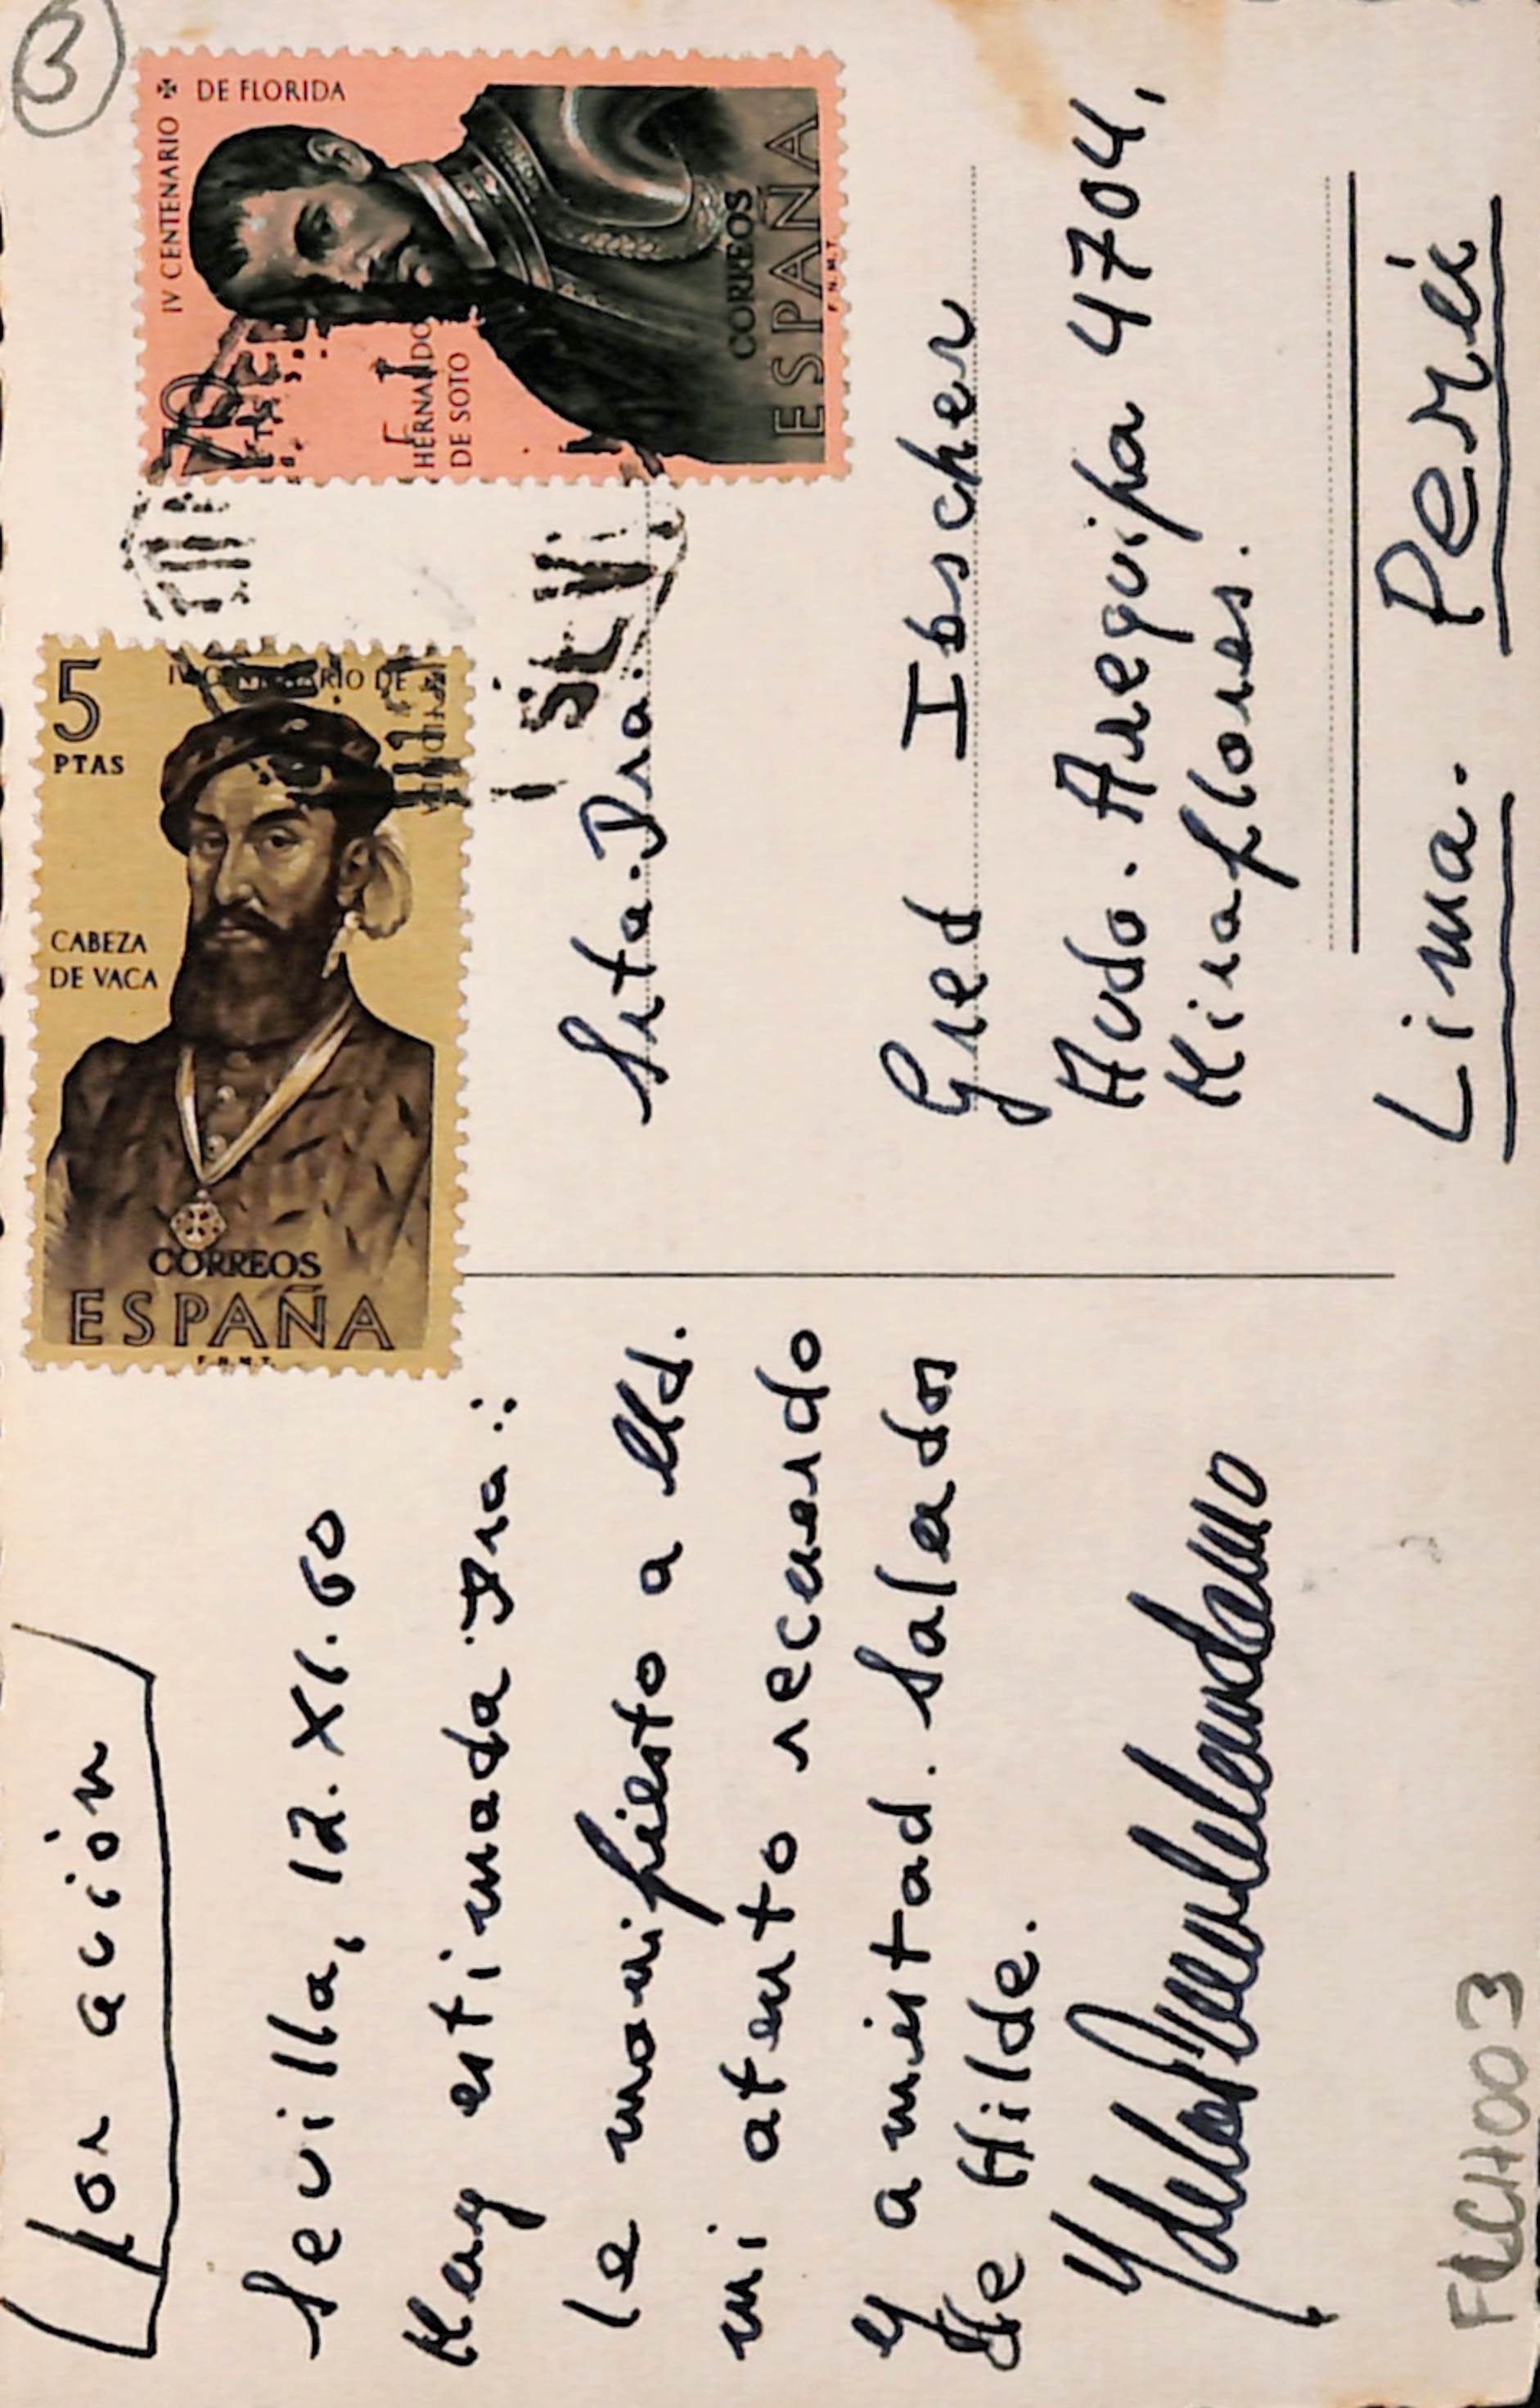 3
Por avión
Sevilla, 12. XI. 60
Muy estimada Dra.:
le manifiesto a Ud.
mi atento recuerdo
y amistad. Saludos
de Hilde.
5
PTAS
IV CENTENARIO DE
CABEZA
DE VACA
CORREOS
ESPAÑA
F.N.M.T.
IV CENTENARIO DE FLORIDA
70
HERNANDO
DE SOTO
CORREOS
ESPAÑA
F.N.M.T.
Srta. Dra.
Gred Ibscher
Avda. Arequipa 4704,
Miraflores.
Lima. Perú
FLCH003